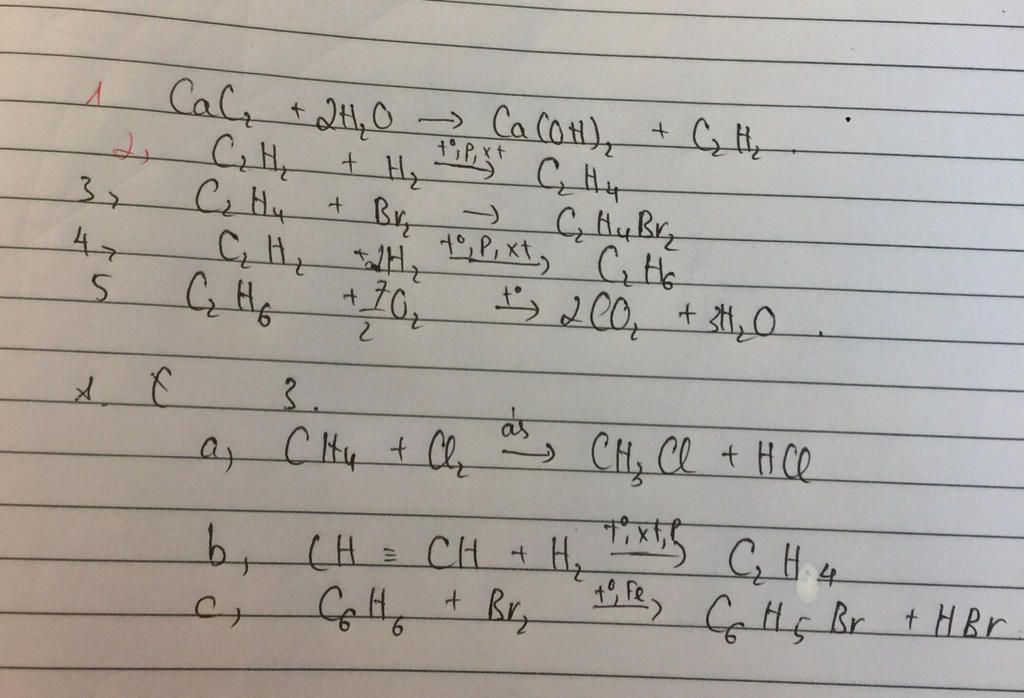 1 CaC₂ + 2H₂O → Ca(OH)₂ + C₂H₂.
2, C₂H₂ + H₂ →(t°, P, xt) C₂H₄
3, C₂H₄ + Br₂ → C₂H₄Br₂
4, C₂H₂ + 2H₂ →(t°, P, xt) C₂H₆
5 C₂H₆ + 7/2 O₂ →(t°) 2CO₂ + 3H₂O.
3.
a, CH₄ + Cl₂ →(ás) CH₃Cl + HCl
b, CH ≡ CH + H₂ →(t°, xt, P) C₂H₄
c, C₆H₆ + Br₂ →(t°, Fe) C₆H₅Br + HBr